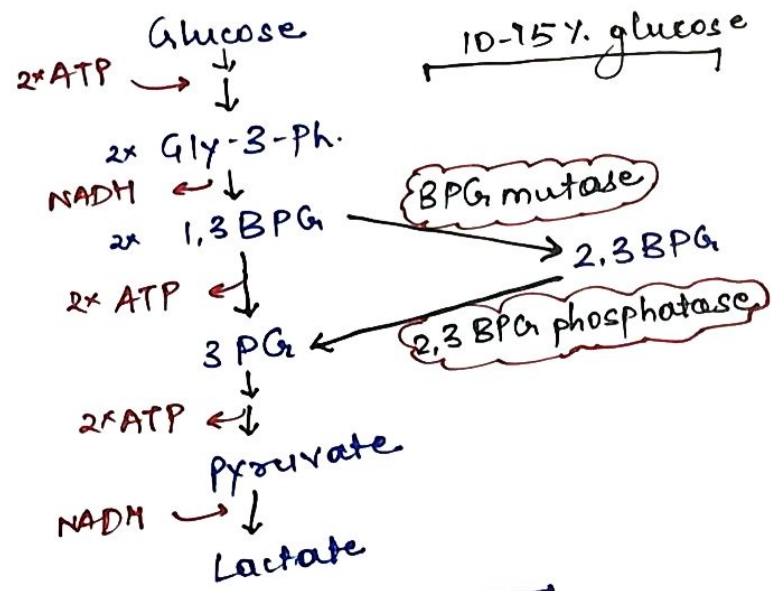 Glucose
10-15%. glucose
2×ATP
2× Gly-3-Ph.
NADH
BPG mutase
2× 1,3 BPG
2,3 BPG
2× ATP
2,3 BPG phosphatase
3 PG
2×ATP
Pyruvate
NADH
Lactate